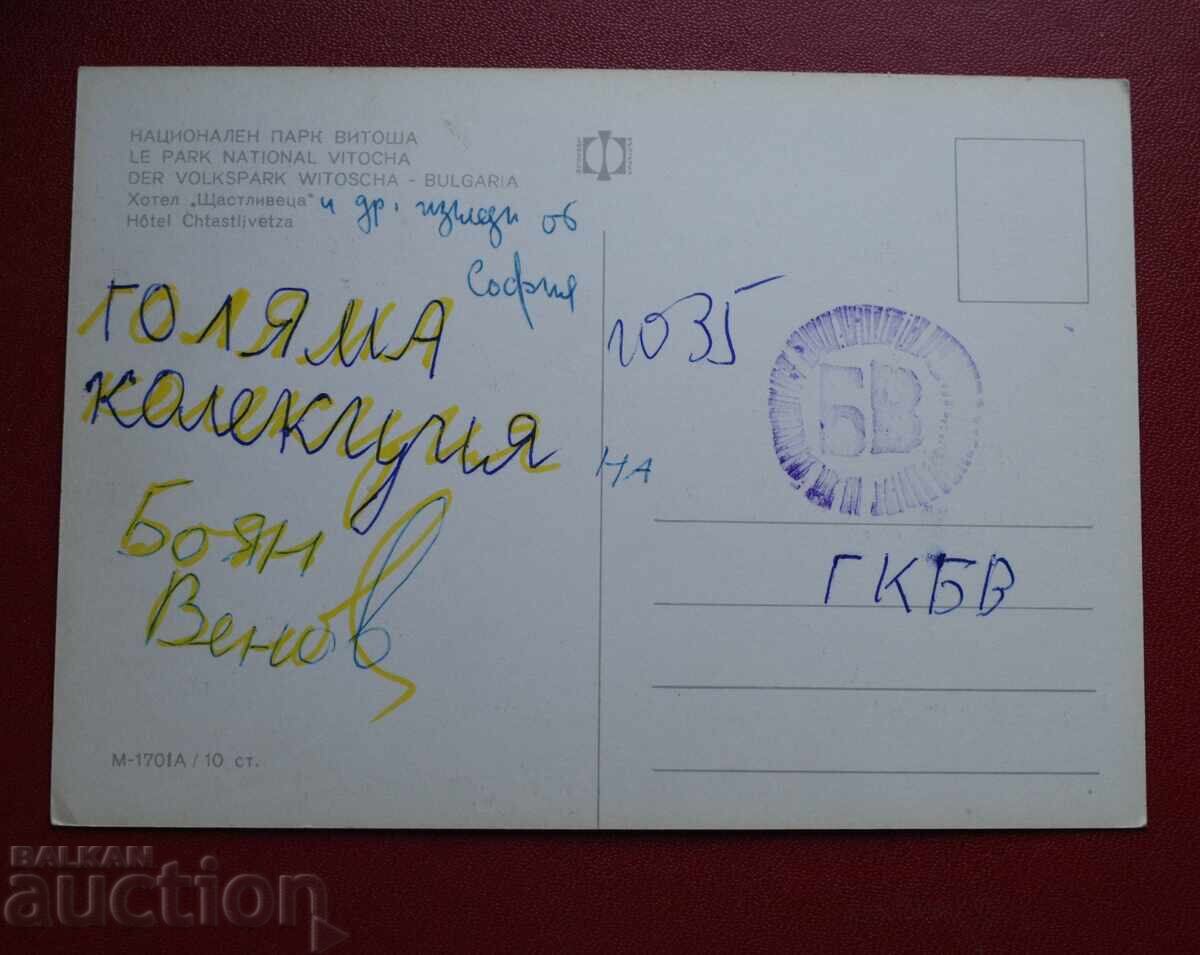 НАЦИОНАЛЕН ПАРК ВИТОША
LE PARK NATIONAL VITOCHA
DER VOLKSPARK WITOSCHA - BULGARIA
Хотел „Щастливеца" и др. изгледи от
Hôtel Chtastlivetza
София
ГОЛЯМА
колекция
НА
Боян
Венов
1035
БВ
ГКБВ
М-1701А / 10 ст.
BALKAN
auction